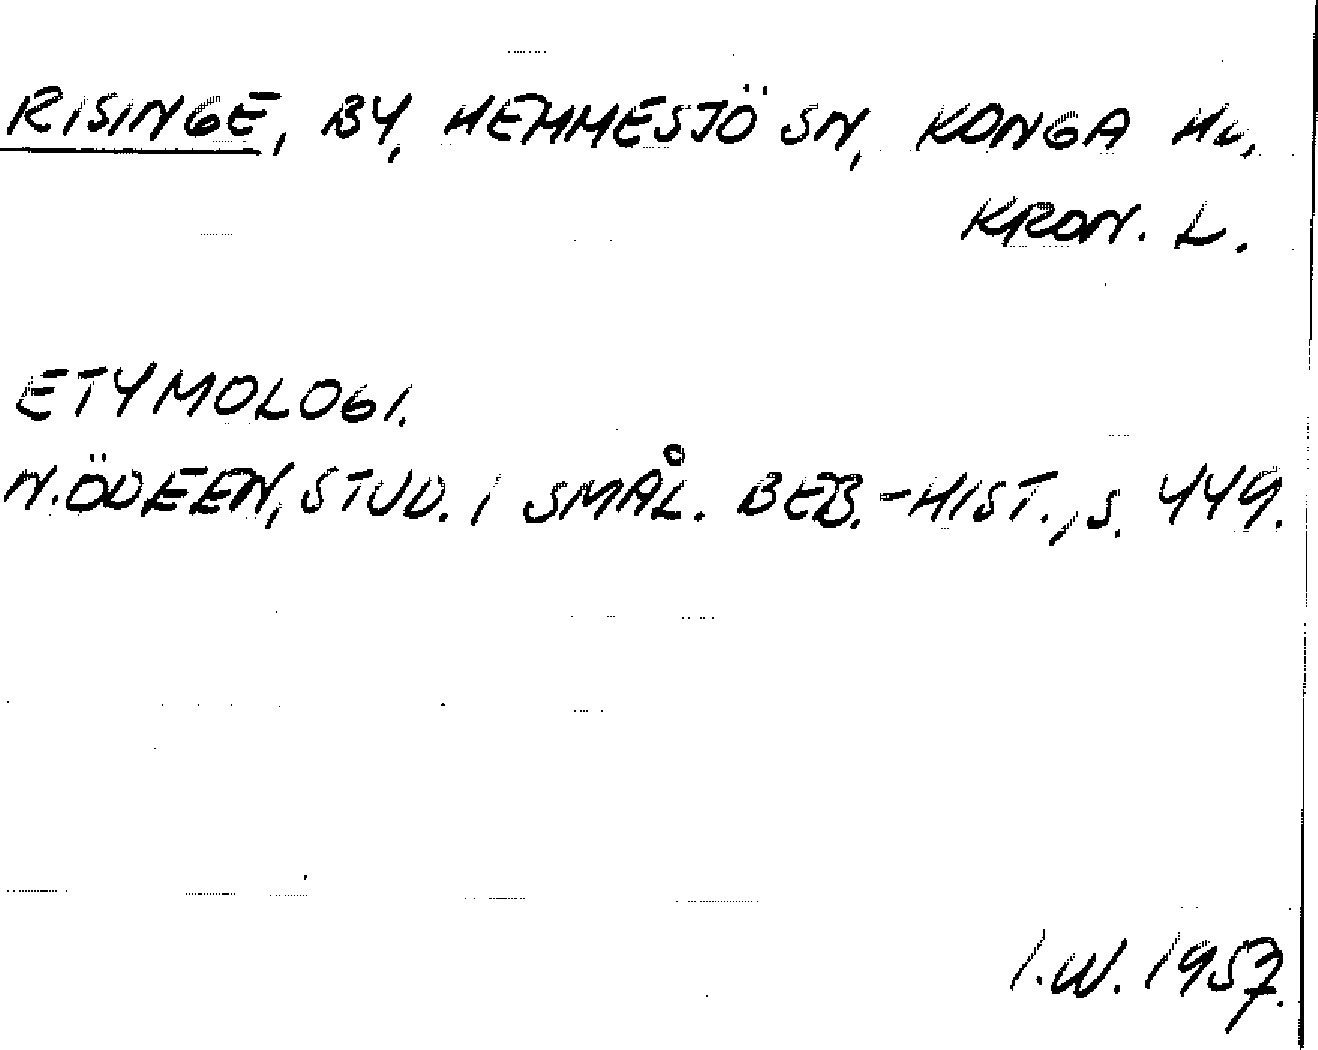 RISINGE, BY, HEMMESJÖ SN, KONGA HD,
KRON. L.
ETYMOLOGI.
N. ÖDEEN, STUD. I SMÅL. BEB.-HIST., S. 449.
I.W. 1957.